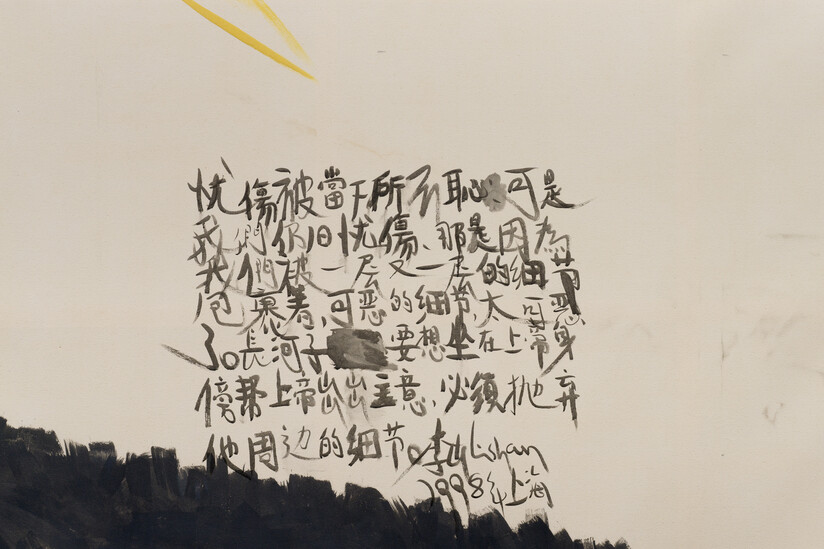 忧傷被當下所不恥 可是
我們仍旧忧傷、那是因為
我們被一层又一层的细节
包裹着,可恶的细节太可恶
了。長河 要想坐在上帝身
傍帮上帝出出主意,必須抛弃
他周边的细节。李山 Lishan
1998年上海